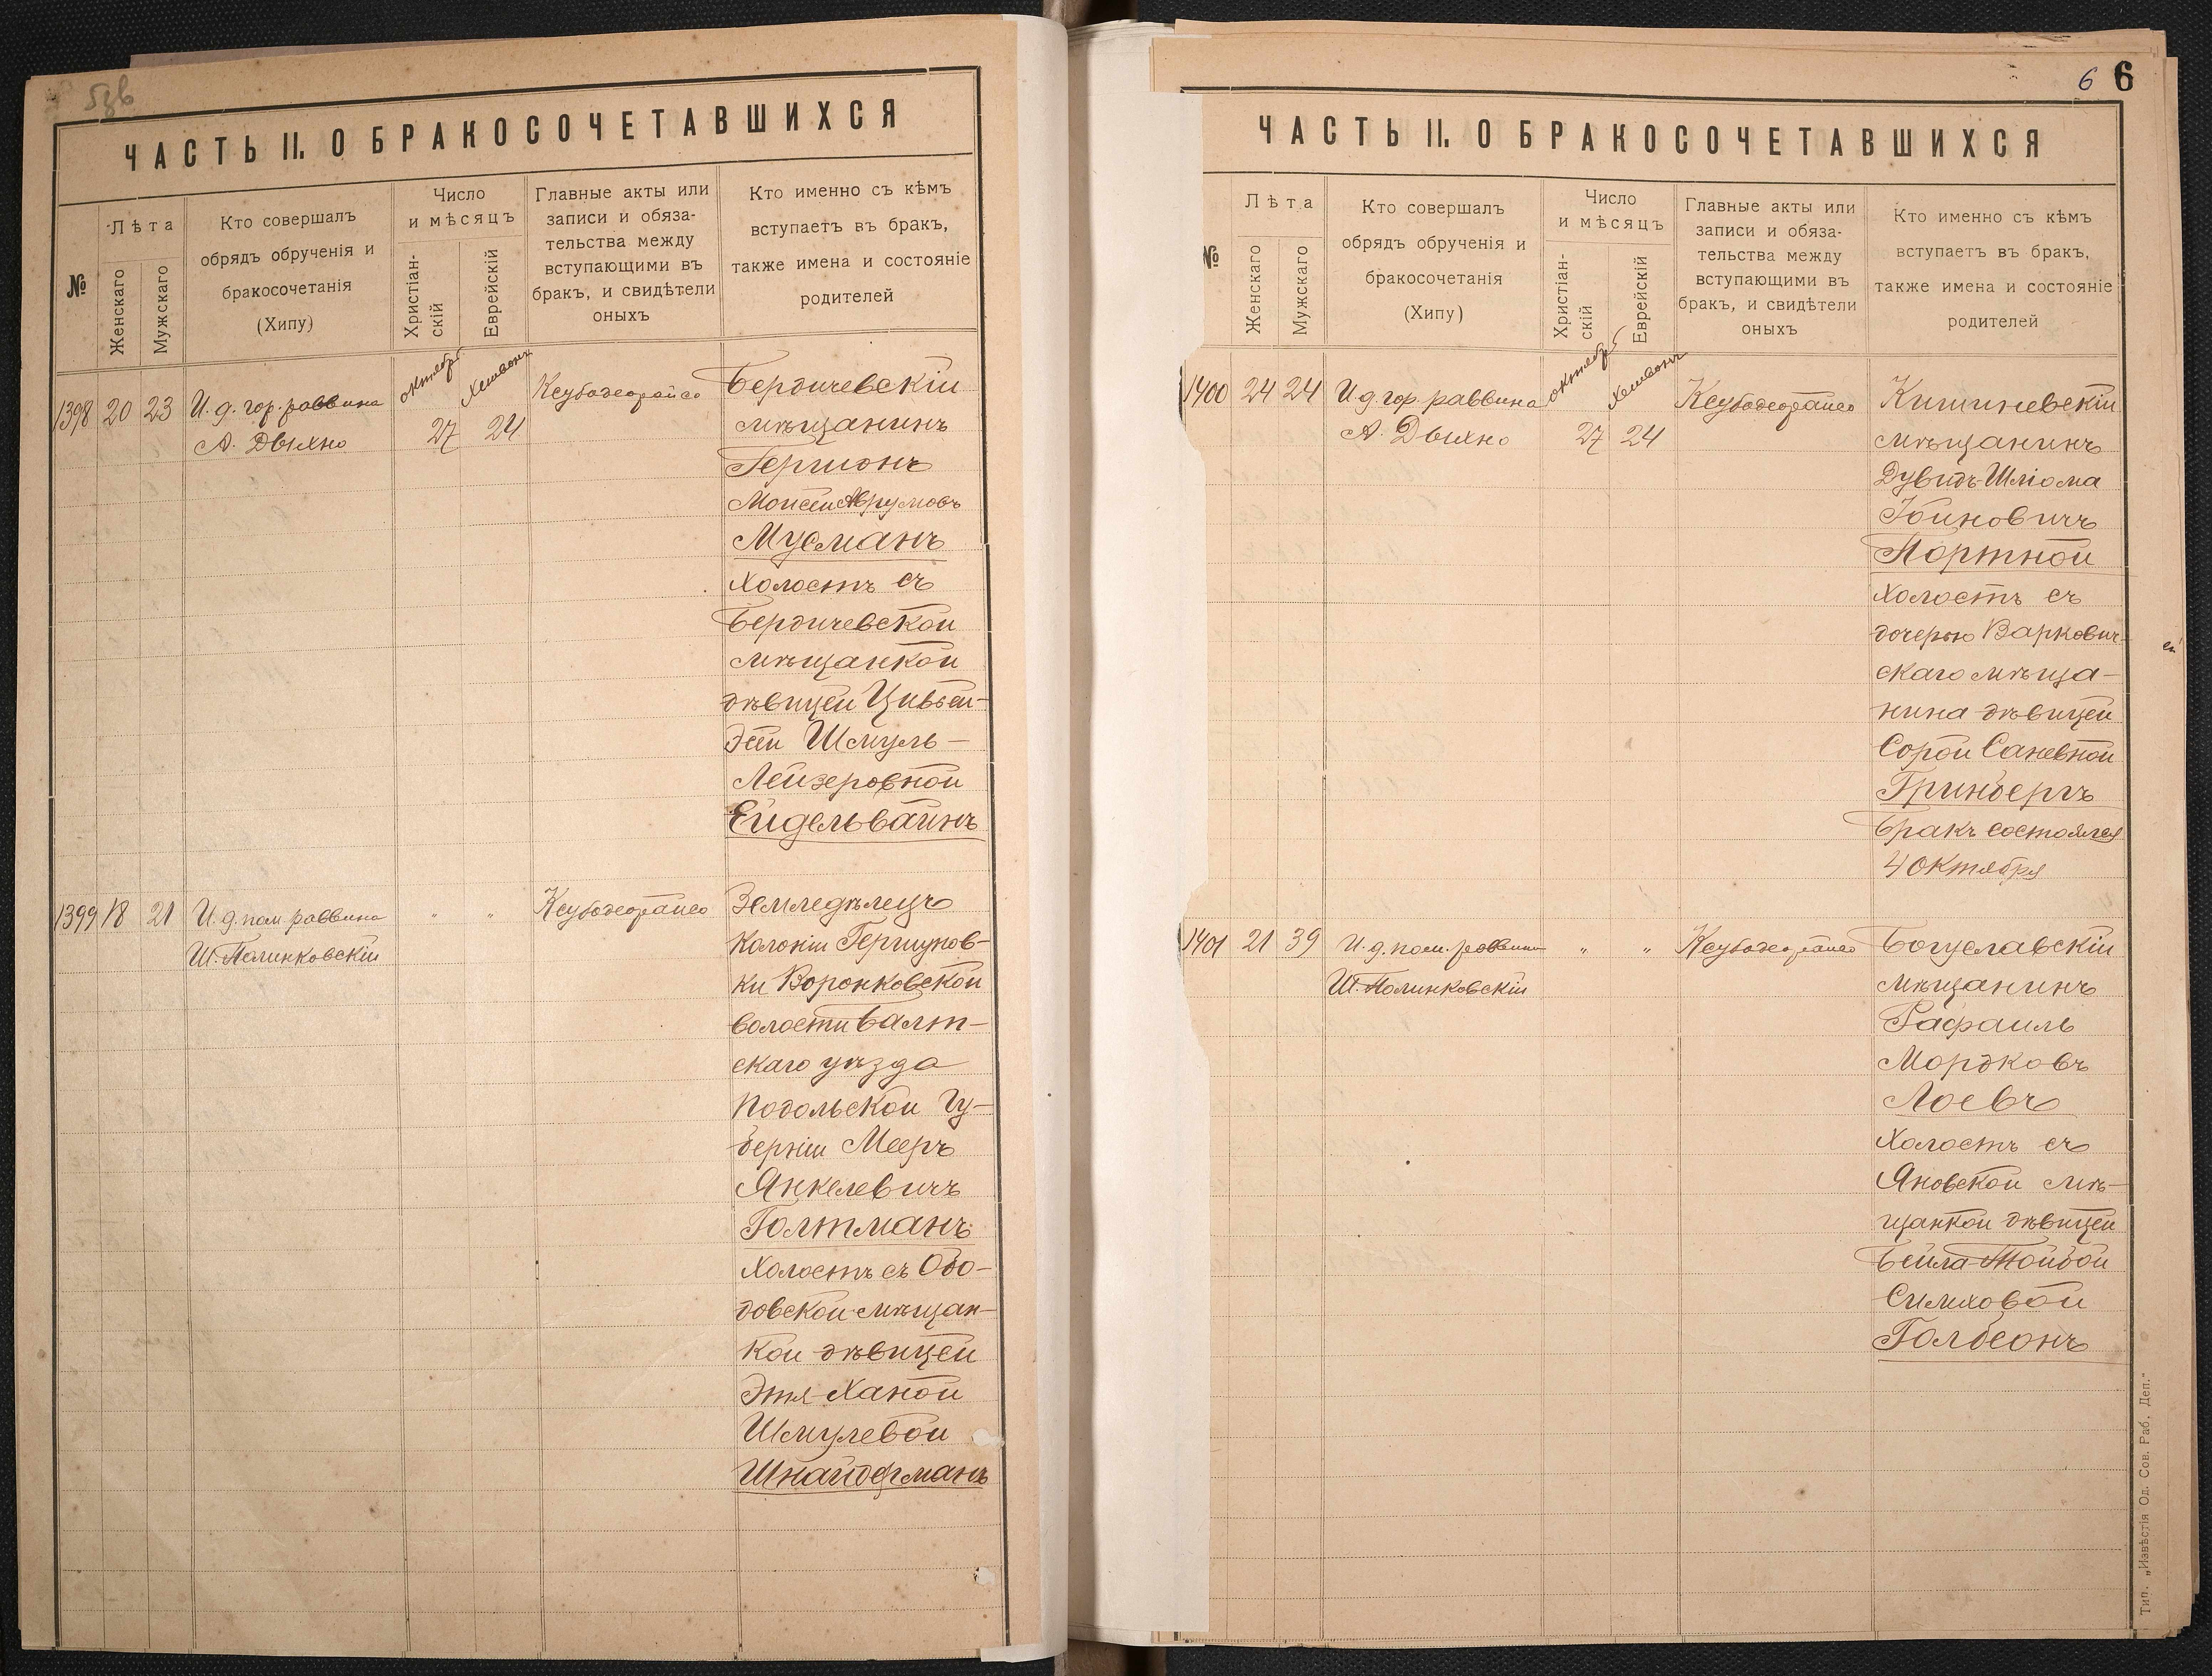 ЧАСТЬ II. О БРАКОСОЧЕТАВШИХСЯ
№
Лѣта
Женскаго
Мужскаго
Кто совершалъ
обрядъ обрученія и
бракосочетанія
(Хипу)
Число
и мѣсяцъ
Христіан-
скій
Еврейскій
Главные акты или
записи и обяза-
тельства между
вступающими въ
бракъ, и свидѣтели
оныхъ
Кто именно съ кѣмъ
вступаетъ въ бракъ,
также имена и состояніе
родителей
1398 20 23
И. д. гор. раввина
А. Дыхно
октябрь
Хешвонъ
27 24
Ксубодеорайсо
Бердичевскій
мѣщанинъ
Гершонъ
Моисей Аврумовъ
Мусманъ
холостъ съ
Бердичевской
мѣщанкой
дѣвицей
Шмуль-
Лейзеровной
Ейдельвайнъ
1399 18 21
И. д. пом. раввина
Ш. Полинковскій
" "
Ксубодеорайсо
Земледѣлецъ
Колоніи Гершунов-
ки Воронковской
волости Балт-
скаго уѣзда
Подольской Гу-
берніи Мееръ
Янкелевичъ
Голтманъ
холостъ съ Обо-
довской мѣщан-
кой дѣвицей
Этя-Ханой
Шмулевой
Шнайдерманъ
6 6
ЧАСТЬ II. О БРАКОСОЧЕТАВШИХСЯ
№
Лѣта
Женскаго
Мужскаго
Кто совершалъ
обрядъ обрученія и
бракосочетанія
(Хипу)
Число
и мѣсяцъ
Христіан-
скій
Еврейскій
Главные акты или
записи и обяза-
тельства между
вступающими въ
бракъ, и свидѣтели
оныхъ
Кто именно съ кѣмъ
вступаетъ въ бракъ,
также имена и состояніе
родителей
1400 24 24
И. д. гор. раввина
А. Дыхно
октябрь
Хешвонъ
27 24
Ксубодеорайсо
Кишиневскій
мѣщанинъ
Дувидъ-Шлiома
Iойновичъ
Портной
холостъ съ
дочерью Варкович-
скаго мѣща-
нина дѣвицей
Сорой Саневной
Гринбергъ
Бракъ состоялся
4 Октября
1401 21 39
И. д. пом. раввина
Ш. Полинковскій
" "
Ксубодеорайсо
Богуславскій
мѣщанинъ
Рафаиль
Мордковъ
Лоевъ
холостъ съ
Яновской мѣ-
щанкой дѣвицей
Бейла-Тойбой
Симховой
Голбеонъ
Тип. „Извѣстія Од. Сов. Раб. Деп."